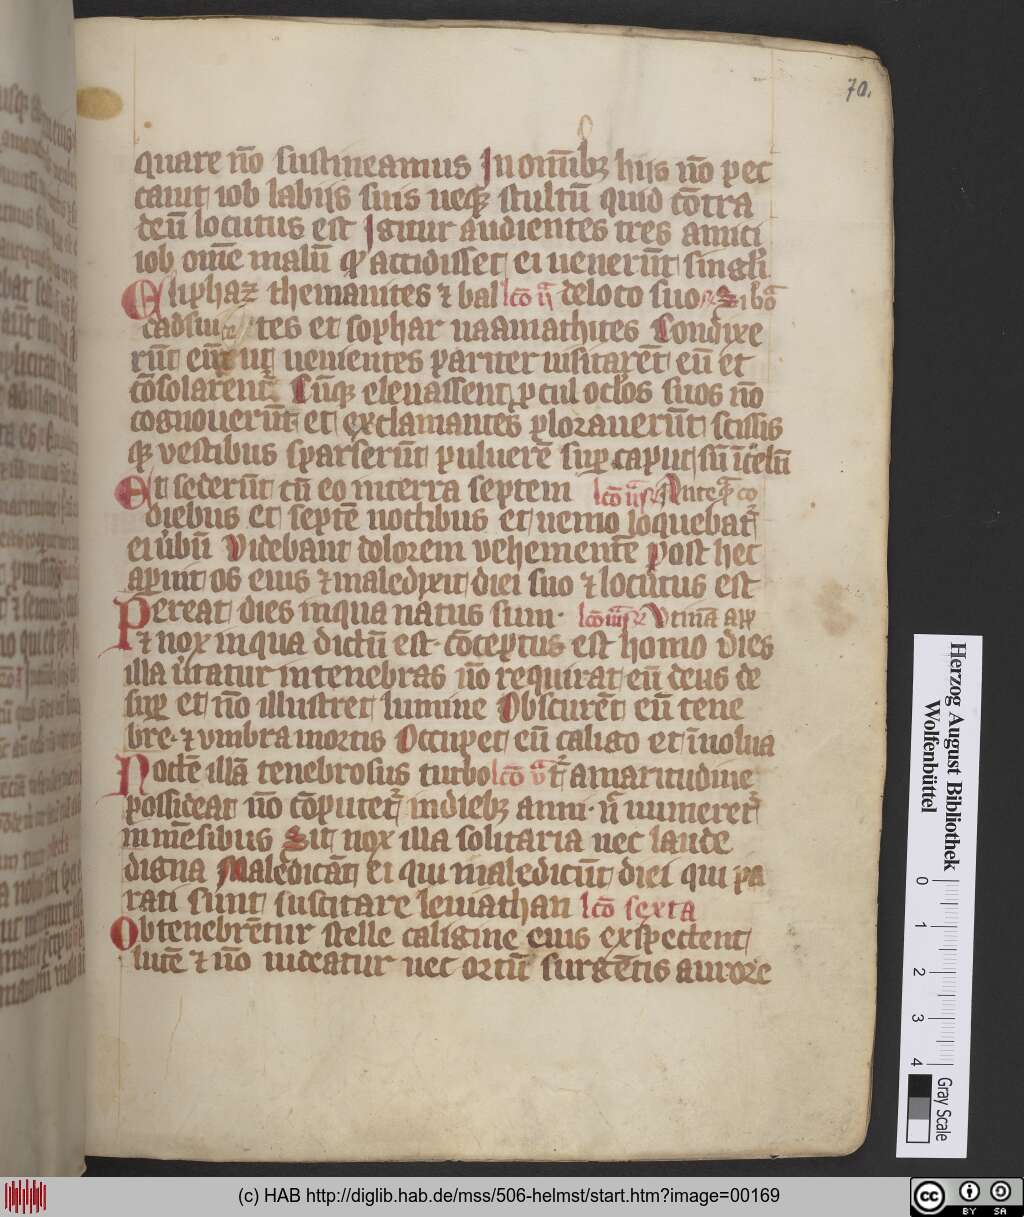 70.
quare nō sustineamus In om̄ibꝫ hijs nō pec
cauit iob labijs suis neqꝫ stultū quid cōtra
deū locutus est Igitur audientes tres amici
iob om̄e malū qd accidisset ei venerūt singli
Eliphaz themanites ⁊ bal lc̄o ij de loco suo
tes et sophar naamathites Condixe
rūt eī ut venientes pariter visitarēt eū et
cōsolarent Cūqꝫ eleuassent ꝓcul oclos suos nō
cognouerūt et exclamantes plorauerūt scissis
qꝫ vestibus sparserūt puluerē suꝑ caput suū ī celū
Et sederūt cū eo in terra septem lc̄o iij
diebus et septē noctibus et nemo loquebat᷑
ei v̓bū Videbant dolorem vehementē Post hec
aꝑuit os eius ⁊ maledixit diei suo ⁊ locutus est
Pereat dies in qua natus sum· lc̄o iiij Vtinā app
⁊ nox in qua dictū est· cōceptus est homo Dies
illa v̓tatur in tenebras nō requirat eū deus de
suꝑ et nō illustret lumine Obscurēt eū tene
bre· ⁊ vmbra mortis Occupet eū caligo et īuolua
Noctē illā tenebrosus turbo lc̄o v t᷑ amaritudine
possideat nō cōputet᷑ in diebꝫ anni· n̄ numeret᷑
in mēsibus Sit nox illa solitaria nec laude
digna Maledicāt ei qui maledicūt diei qui pa
rati sunt suscitare leuiathan lc̄o sexta
Obtenebrētur stelle caligine eius exspectent
lucē ⁊ nō videatur nec ortū surgētis aurore
Herzog August Bibliothek
Wolfenbüttel
0 1 2 3 4
Gray Scale
(c) HAB http://diglib.hab.de/mss/506-helmst/start.htm?image=00169
cc BY SA